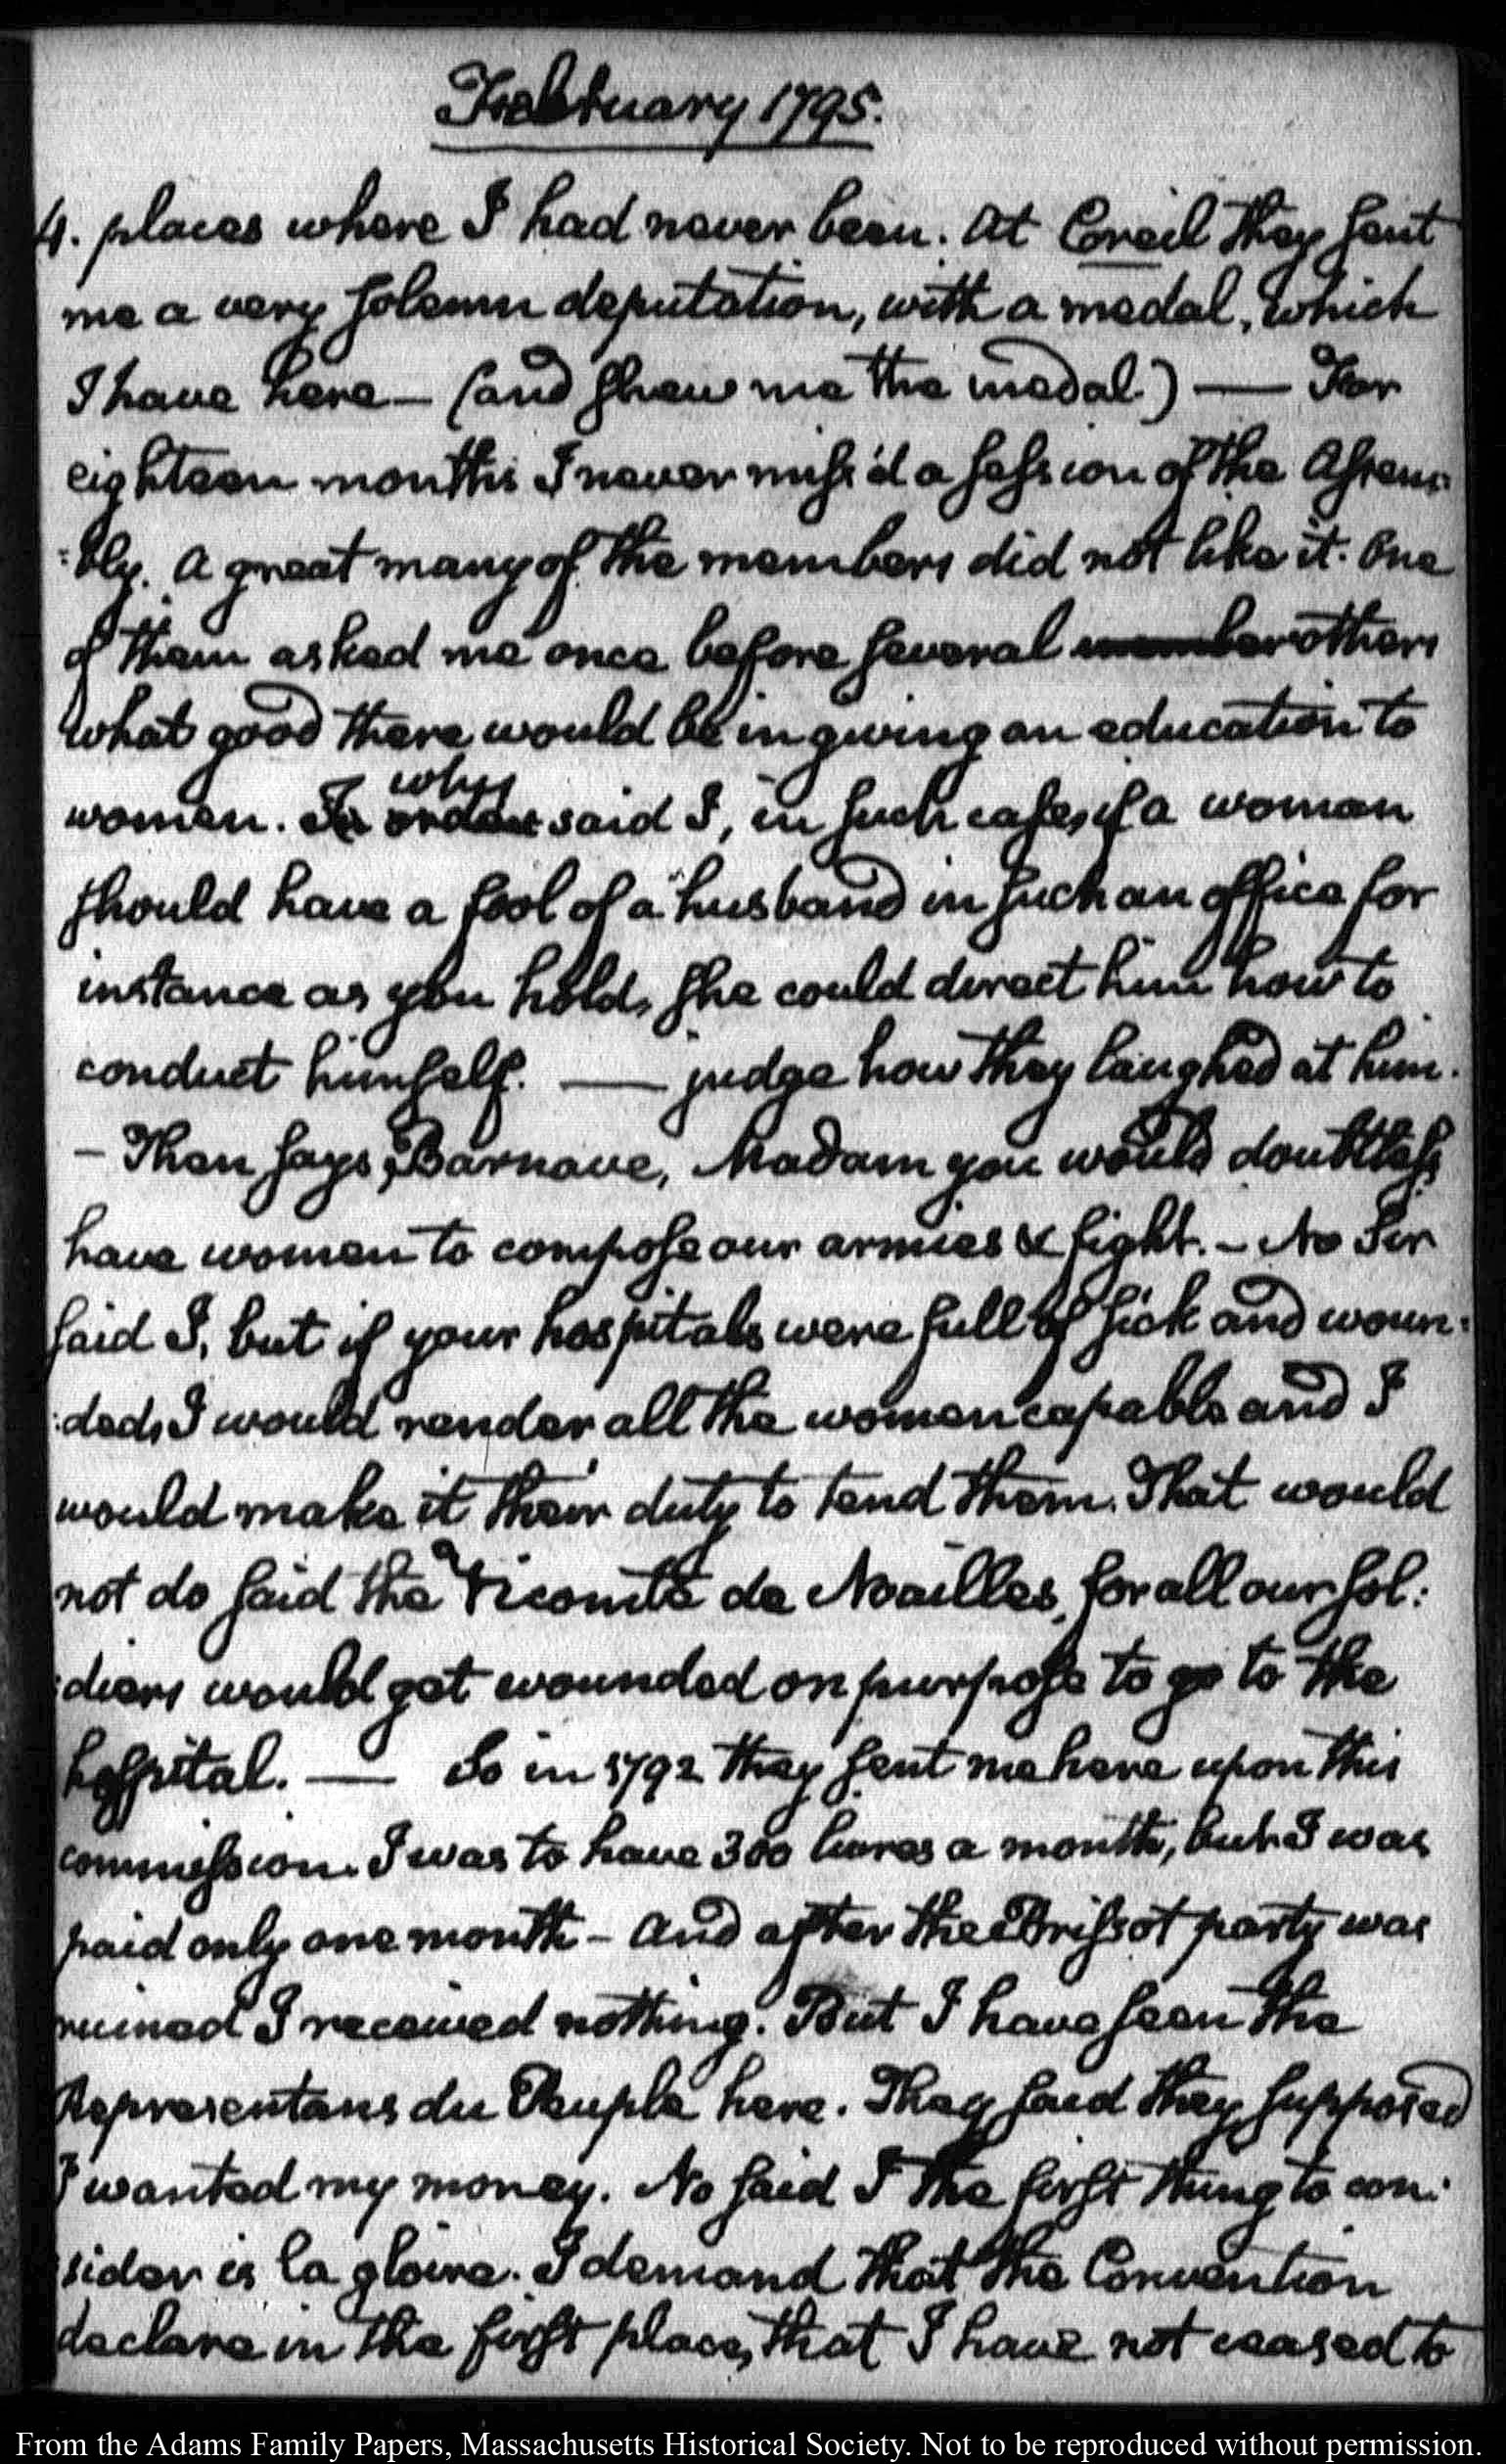 February 1795.
4. places where I had never been. At Coreil they sent
me a very solemn deputation, with a medal, which
I have here — (and shew me the medal.) — For
eighteen months I never miss'd a session of the Assem:
:bly. A great many of the members did not like it. One
of them asked me once before several member others
what good there would be in giving an education to
women. In order why said I, in such case, if a woman
should have a fool of a husband in such an office for
instance as you hold, she could direct him how to
conduct himself. — judge how they laughed at him.
- Then says Barnave, Madam you would doubtless
have women to compose our armies & fight. - No Sir
said I, but if your hospitals were full of sick and woun:
:ded, I would render all the women capable and I
would make it their duty to tend them. That would
not do said the Vicomte de Noailles, for all our sol:
:diers would get wounded on purpose to go to the
hospital. — So in 1792 they sent me here upon this
commission. I was to have 300 livres a month, but I was
paid only one month - and after the Brissot party was
ruined I received nothing. But I have seen the
Representans du Peuple here. They said they supposed
I wanted my money. No said I the first thing to con:
:sider is la gloire. I demand that the Convention
declare in the first place, that I have not ceased to
From the Adams Family Papers, Massachusetts Historical Society. Not to be reproduced without permission.